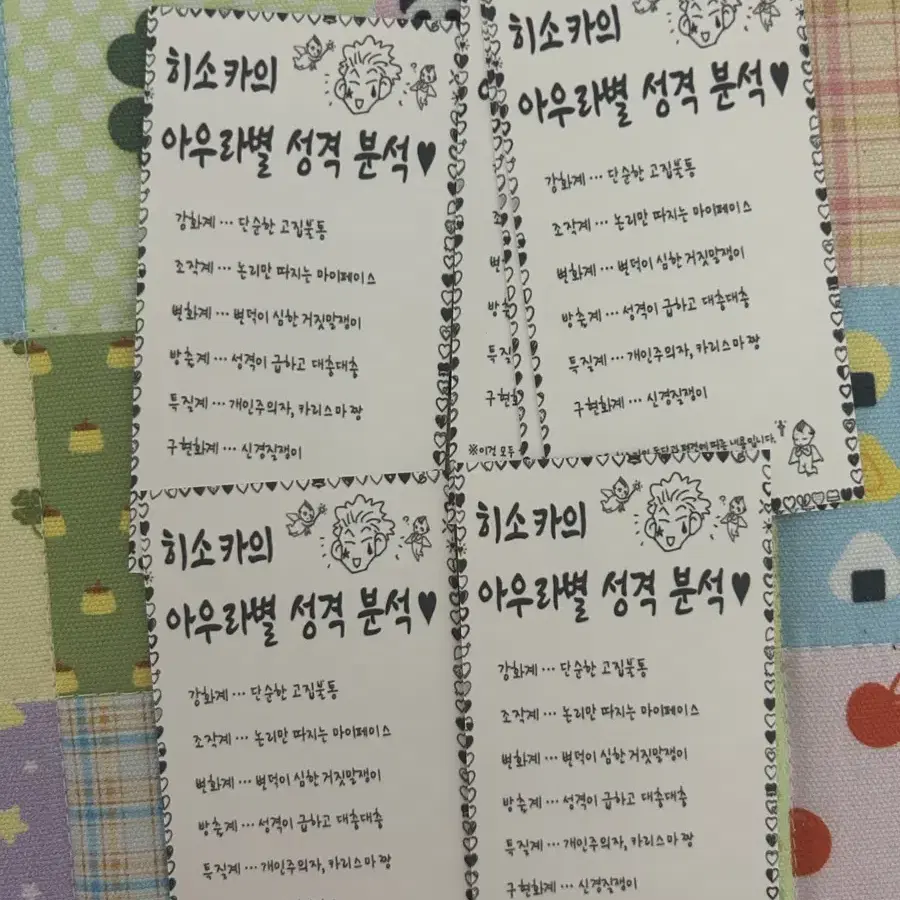 히소카의
아우라별 성격 분석♥
강화계 … 단순한 고집불통
조작계 … 논리만 따지는 마이페이스
변화계 … 변덕이 심한 거짓말쟁이
방출계 … 성격이 급하고 대충대충
특질계 … 개인주의자, 카리스마 짱
구현화계 … 신경질쟁이
변
방출
특질
구현화
※이건 모두
히소카의
아우라별 성격 분석♥
강화계 … 단순한 고집불통
조작계 … 논리만 따지는 마이페이스
변화계 … 변덕이 심한 거짓말쟁이
방출계 … 성격이 급하고 대충대충
특질계 … 개인주의자, 카리스마 짱
구현화계 … 신경질쟁이
독단과 편견에 따른 내용입니다.
히소카의
아우라별 성격 분석♥
강화계 … 단순한 고집불통
조작계 … 논리만 따지는 마이페이스
변화계 … 변덕이 심한 거짓말쟁이
방출계 … 성격이 급하고 대충대충
특질계 … 개인주의자, 카리스마 짱
히소카의
아우라별 성격 분석♥
강화계 … 단순한 고집불통
조작계 … 논리만 따지는 마이페이스
변화계 … 변덕이 심한 거짓말쟁이
방출계 … 성격이 급하고 대충대충
특질계 … 개인주의자, 카리스마 짱
구현화계 … 신경질쟁이